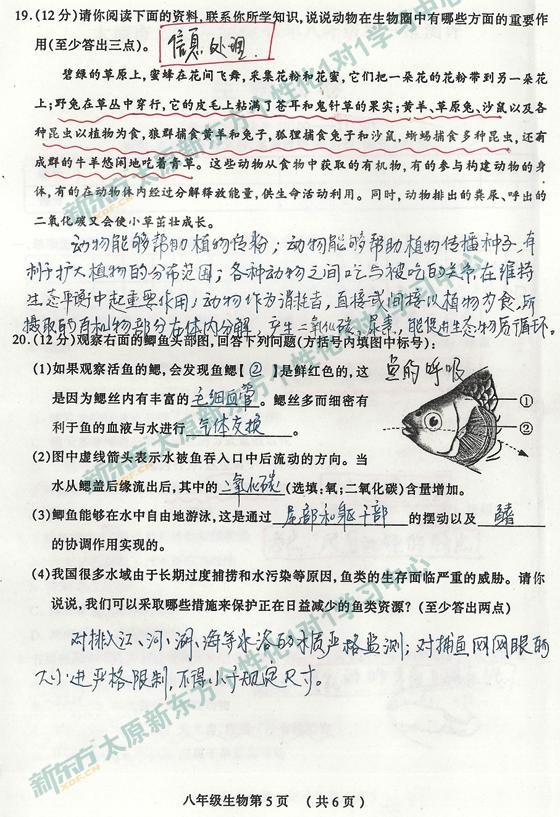 19.(12分)请你阅读下面的资料,联系你所学知识,说说动物在生物圈中有哪些方面的重要作
用(至少答出三点)。 信息处理.
碧绿的草原上,蜜蜂在花间飞舞,采集花粉和花蜜,它们把一朵花的花粉带到另一朵花
上;野兔在草丛中穿行,它的皮毛上粘满了苍耳和鬼针草的果实;黄羊、草原兔、沙鼠以及各
种昆虫以植物为食,狼群捕食黄羊和兔子,狐狸捕食兔子和沙鼠,蜥蜴捕食多种昆虫,还有
成群的牛羊悠闲地吃着青草。这些动物从食物中获取的有机物,有的参与构建动物的身
体,有的在动物体内经过分解释放能量,供生命活动利用。同时,动物排出的粪尿、呼出的
二氧化碳又会使小草茁壮成长。
动物能够帮助植物传粉;动物能够帮助植物传播种子,有
利于扩大植物的分布范围;各种动物之间吃与被吃的关系在维持
生态平衡中起重要作用;动物作为消耗者,直接或间接以植物为食,所
摄取的有机物部分在体内分解,产生二氧化碳、尿素,能促进生态物质循环。
20.(12分)观察右面的鲫鱼头部图,回答下列问题(方括号内填图中标号):
(1)如果观察活鱼的鳃,会发现鱼鳃【②】是鲜红色的,这 鱼的呼吸
是因为鳃丝内有丰富的 毛细血管 。鳃丝多而细密有
利于鱼的血液与水进行 气体交换 。
①
②
(2)图中虚线箭头表示水被鱼吞入口中后流动的方向。当
水从鳃盖后缘流出后,其中的 二氧化碳 (选填:氧;二氧化碳)含量增加。
(3)鲫鱼能够在水中自由地游泳,这是通过 尾部和躯干部 的摆动以及 鳍
的协调作用实现的。
(4)我国很多水域由于长期过度捕捞和水污染等原因,鱼类的生存面临严重的威胁。请你
说说,我们可以采取哪些措施来保护正在日益减少的鱼类资源?(至少答出两点)
对排入江、河、湖、海等水洛的水质严格监测;对捕鱼网网眼的
大小进严格限制,不得小于规定尺寸。
八年级生物第5页 (共6页)
新东方 太原新东方个性化1对1学习中心
XDF.CN